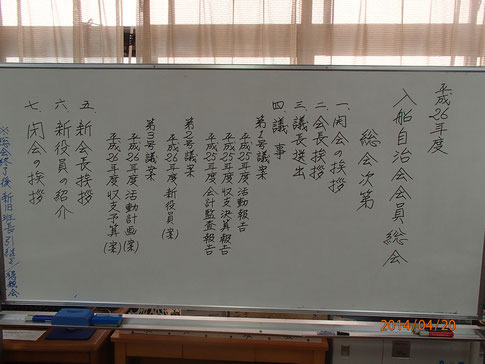 平成26年度
入船自治会会員総会
総会次第
一、開会の挨拶
二、会長挨拶
三、議長選出
四、議事
第1号議案
平成25年度活動報告
平成25年度収支決算報告
平成25年度会計監査報告
第2号議案
平成26年度新役員(案)
第3号議案
平成26年度活動計画(案)
平成26年度収支予算(案)
五、新会長挨拶
六、新役員の紹介
七、閉会の挨拶
※総会終了後、新旧班長引継ぎ
2014/04/20